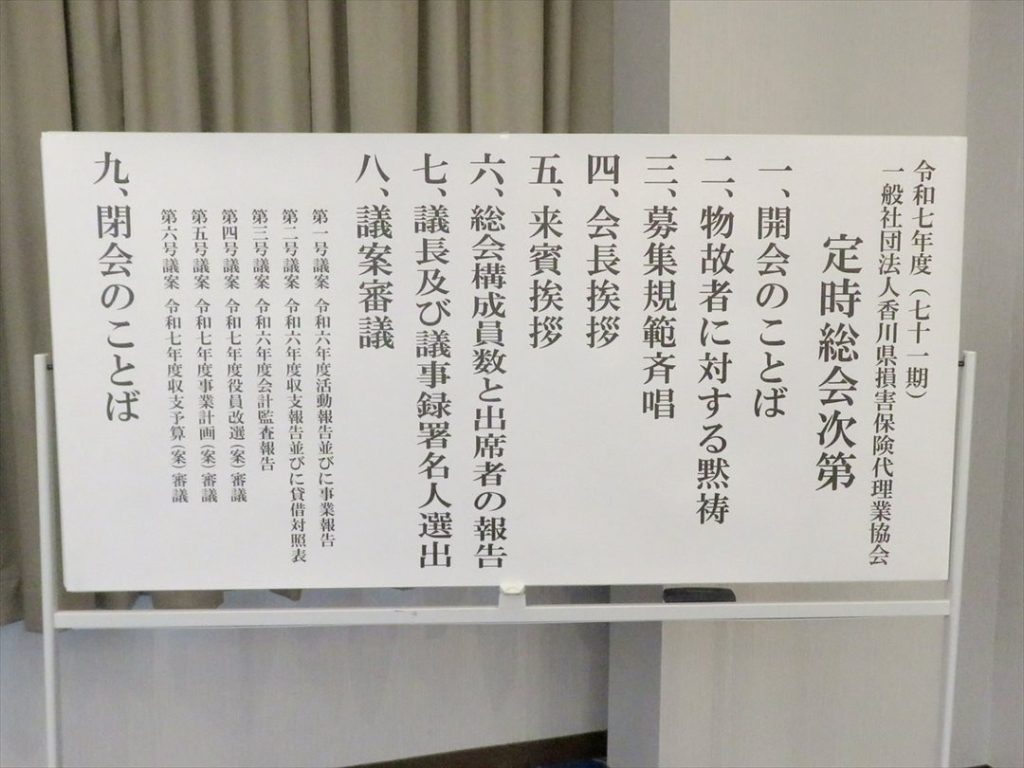 令和七年度(七十一期)
一般社団法人香川県損害保険代理業協会
定時総会次第
一、開会のことば
二、物故者に対する黙祷
三、募集規範斉唱
四、会長挨拶
五、来賓挨拶
六、総会構成員数と出席者の報告
七、議長及び議事録署名人選出
八、議案審議
第一号議案 令和六年度活動報告並びに事業報告
第二号議案 令和六年度収支報告並びに貸借対照表
第三号議案 令和六年度会計監査報告
第四号議案 令和七年度役員改選(案)審議
第五号議案 令和七年度事業計画(案)審議
第六号議案 令和七年度収支予算(案)審議
九、閉会のことば